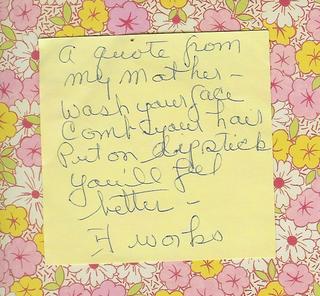 A quote from
my mother -
Wash your face
Comb your hair
Put on lipstick
you'll feel
better -
It works